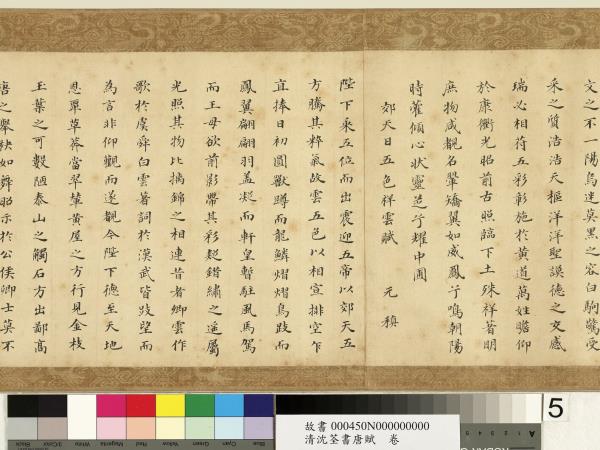 文之不一陽烏迷莫黑之容白駒驚受
采之質浩浩天樞洋洋聖謨德之交感
瑞必相符五彩彰施於黃道萬姓瞻仰
於康衢光昭前古照臨下土殊祥著明
庶物咸覩名翬矯翼如威鳳兮鳴朝陽
時藿傾心狀靈芝兮耀中圃
郊天日五色祥雲賦 元稹
陛下乘五位而出震迎五帝以郊天五
方騰其粹氣故雲五色以相宣排空乍
直捧日初圓獸蹲而龍鱗熠熠鳥跂而
鳳翼翩翩羽蓋凝而軒皇暫駐風馬駕
而王母欲前影帶其彩疑錯繡之遙屬
光照其物比摛錦之相連昔者卿雲作
歌於虞舜白雲著詞於漢武皆跂望而
為言非仰觀而遂覩今陛下德至天地
恩覃草莽當翠輦黃屋之方行見金枝
玉葉之可數陋泰山之觸石方出鄙高
唐之舉袂如舞昭示於公侯卿士莫不
故書 000450N000000000
清沈荃書唐賦 卷
Black
3/Color
White
Magenta
Red
Yellow
Green
Cyan
Blue
5
A